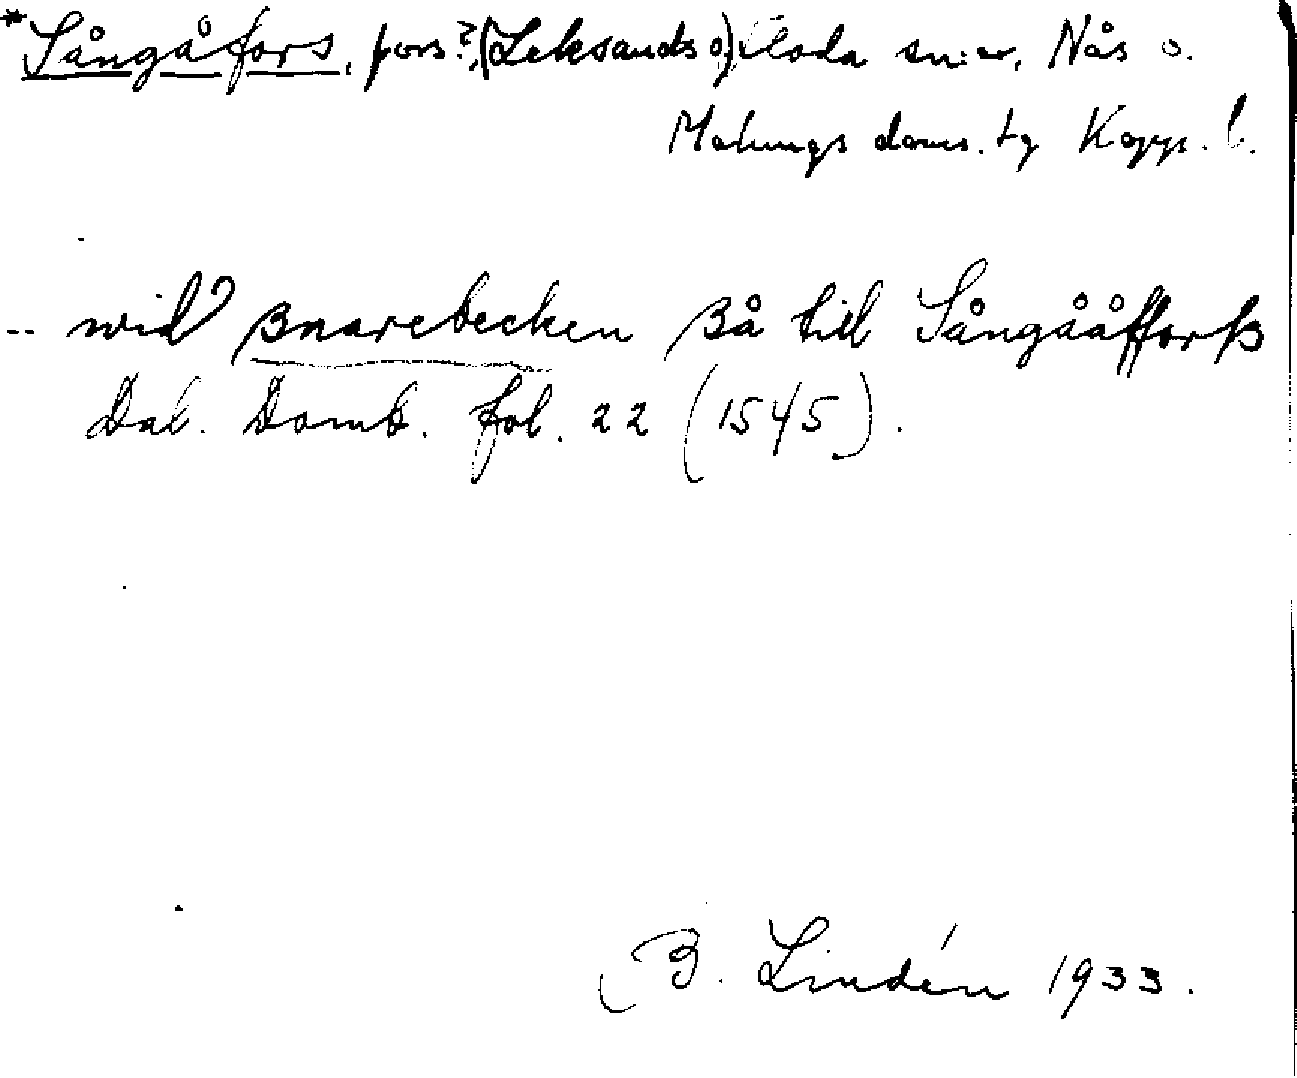 *Sångåfors, fors?, (Leksands o) Floda sn:ar, Nås o.
Malungs doms. tg Kopp. l.
-- wid ßnarebecken ßå till Sångååfforß
Dal. Domb. fol. 22 (1545).
B. Lindén 1933.